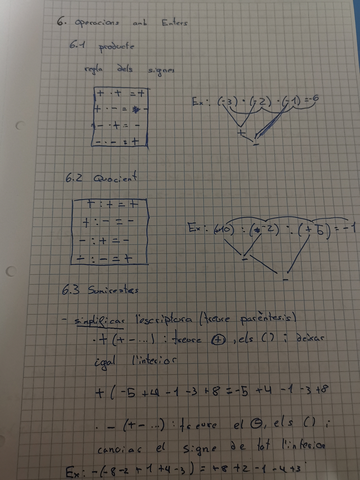 6. Operacions amb Enters
6.1 producte
regla dels signes
+ · + = +
+ · - = -
- · + = -
- · - = +
Ex: (-3) · (-2) · (-1) = -6
+
-
6.2 Quocient
+ : + = +
+ : - = -
- : + = -
- : - = +
Ex: (+10) : (-2) : (+5) = -1
-
-
6.3
- simplificar l'escriptura (treure parèntesis)
· + (+ - ...) : treure ⊕, els () i deixar
igual l'interior
+ (-5 +4 -1 -3 +8 = -5 +4 -1 -3 +8
· - (+ - ...) : treure el ⊖, els () i
canvias el signe de tot l'interior
Ex: -(-8 -2 +1 +4 -3) = +8 +2 -1 -4 +3